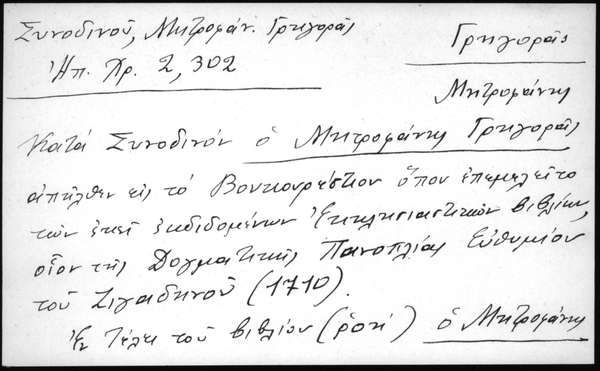 Συνοδινοῦ, Μητροφάν. Γρηγορᾶς
Γρηγορᾶς
Ἠπ. Χρ. 2, 302
Μητροφάνης
Κατά Συνοδινόν ὁ Μητροφάνης Γρηγορᾶς
ἀπῆλθεν εἰς τό Βουκουρέστιον ὅπου ἐπεμελεῖτο
τῶν ἐκεῖ ἐκδιδομένων Ἐκκλησιαστικῶν βιβλίων,
οἷον τῆς Δογματικῆς Πανοπλίας Εὐθυμίου
τοῦ Ζιγαδηνοῦ (1710).
Ἐν τέλει τοῦ βιβλίου () ὁ Μητροφάνης